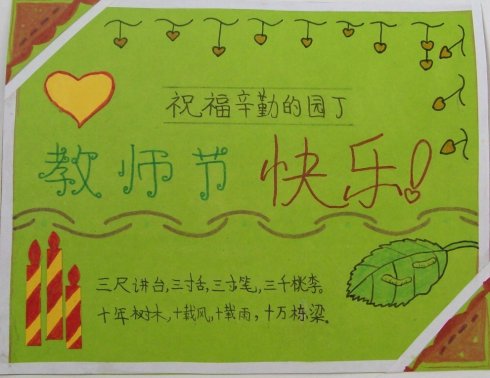 祝福辛勤的园丁
教师节 快乐!
三尺讲台,三寸舌,三寸笔,三千桃李。
十年树木,十载风,十载雨,十万栋梁。